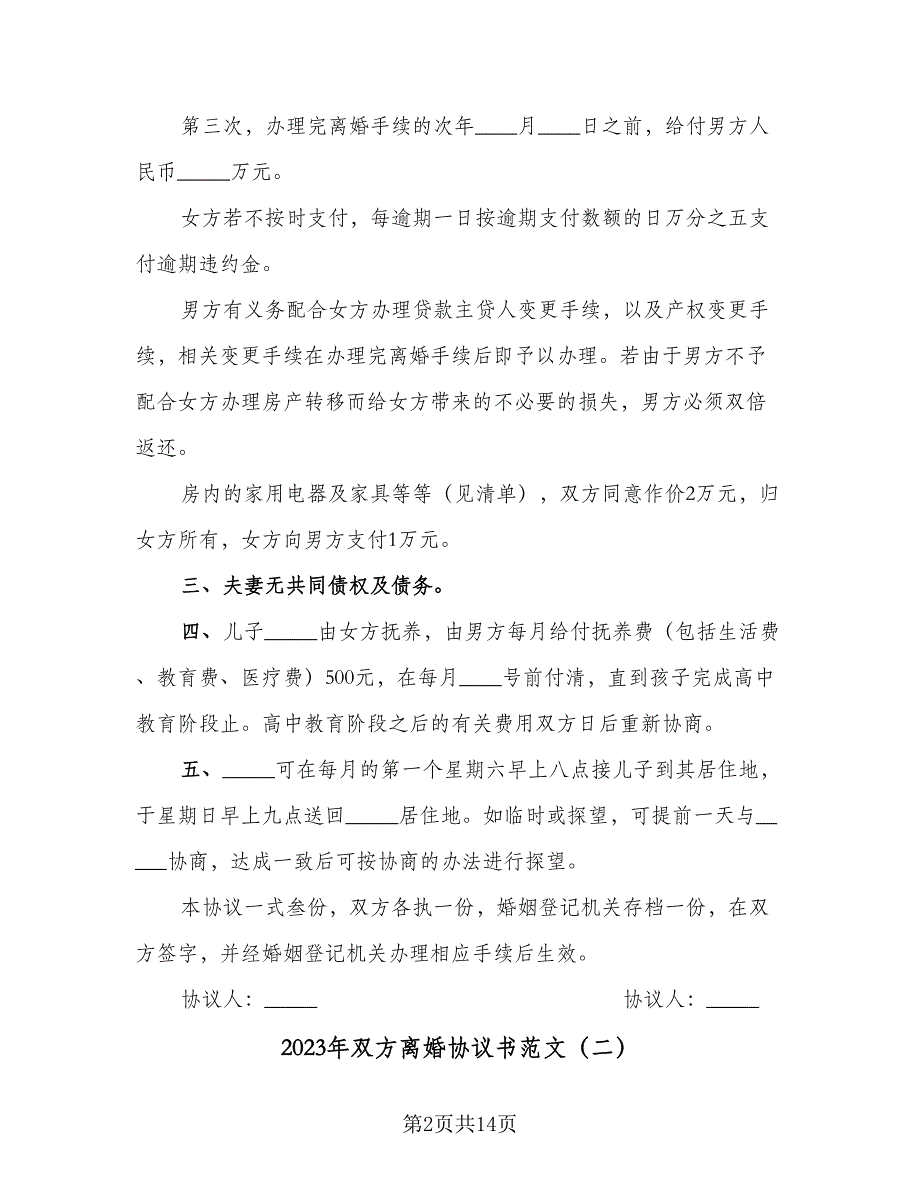 第三次，办理完离婚手续的次年____月____日之前，给付男方人
民币_____万元。
女方若不按时支付，每逾期一日按逾期支付数额的日万分之五支
付逾期违约金。
男方有义务配合女方办理贷款主贷人变更手续，以及产权变更手
续，相关变更手续在办理完离婚手续后即予以办理。若由于男方不予
配合女方办理房产转移而给女方带来的不必要的损失，男方必须双倍
返还。
房内的家用电器及家具等等（见清单），双方同意作价2万元，归
女方所有，女方向男方支付1万元。
三、夫妻无共同债权及债务。
四、儿子_____由女方抚养，由男方每月给付抚养费（包括生活费
、教育费、医疗费）500元，在每月____号前付清，直到孩子完成高中
教育阶段止。高中教育阶段之后的有关费用双方日后重新协商。
五、_____可在每月的第一个星期六早上八点接儿子到其居住地，
于星期日早上九点送回_____居住地。如临时或探望，可提前一天与__
___协商，达成一致后可按协商的办法进行探望。
本协议一式叁份，双方各执一份，婚姻登记机关存档一份，在双
方签字，并经婚姻登记机关办理相应手续后生效。
协议人：_____ 协议人：_____
2023年双方离婚协议书范文（二）
第2页共14页